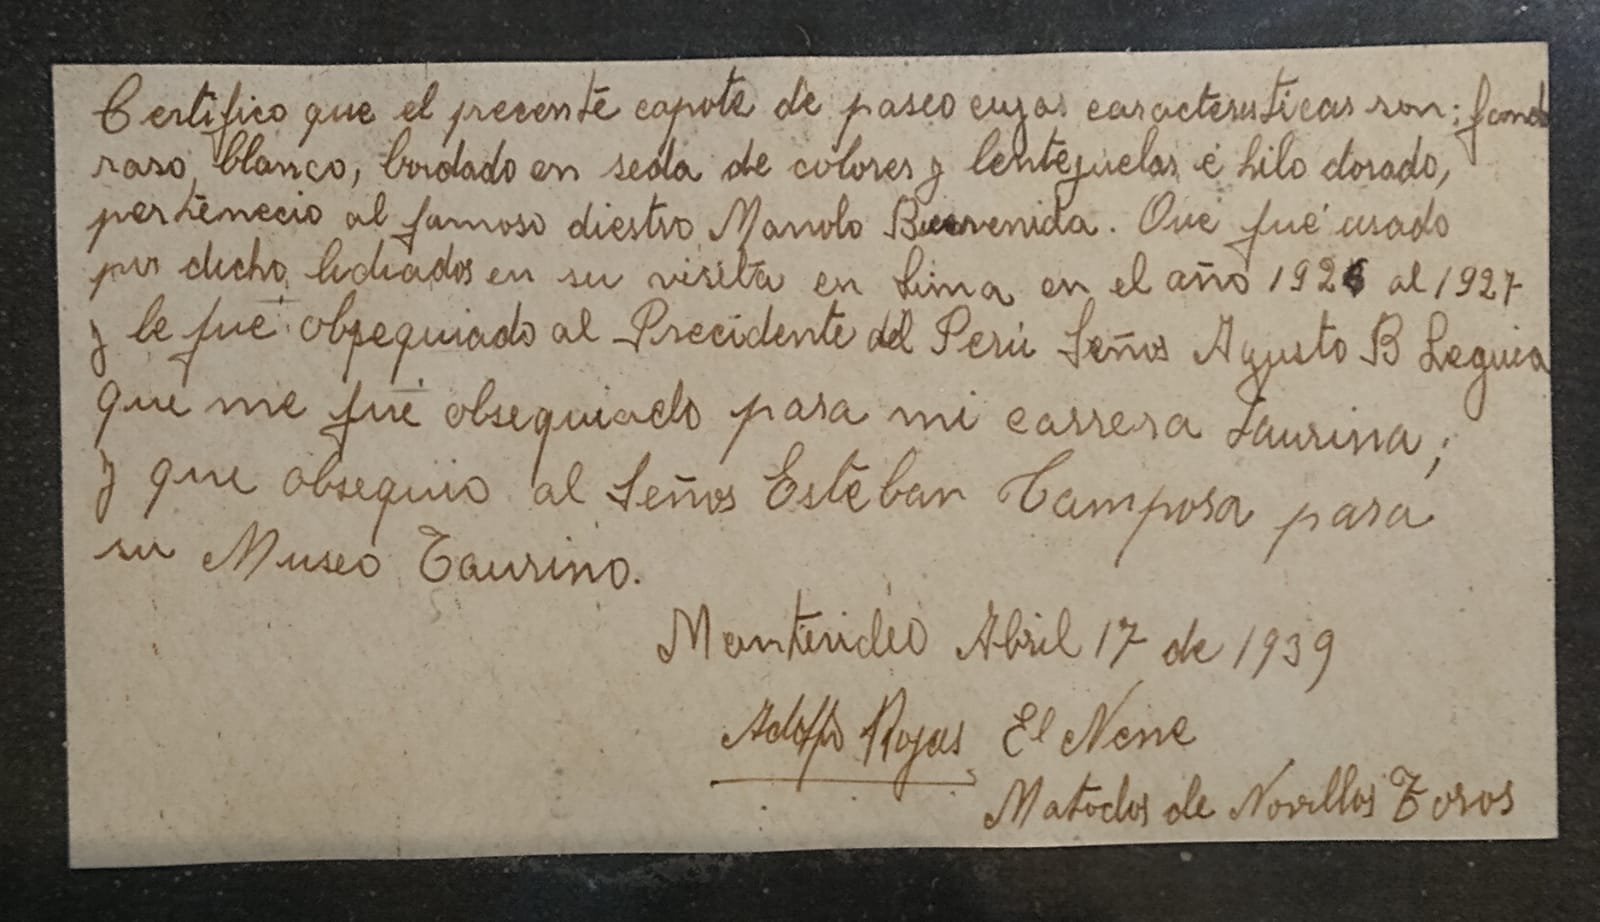 Certifico que el precente capote de paseo cuyas caracteristicas son: fondo
raso blanco, bordado en seda de colores y lentejuelas é hilo dorado,
pertenecio al famoso diestro Manolo Bienvenida. Que fué usado
por dicho lidiador en su visita en Lima en el año 1926 al 1927
y le fué obsequiado al Precidente del Perú Señor Agusto B Leguia
que me fué obsequiado para mi carrera taurina;
y que obsequio al Señor Esteban Tampora para
su Museo Taurino.
Montevideo Abril 17 de 1939
Adolfo Rojas El Nene
Matador de Novillos Toros